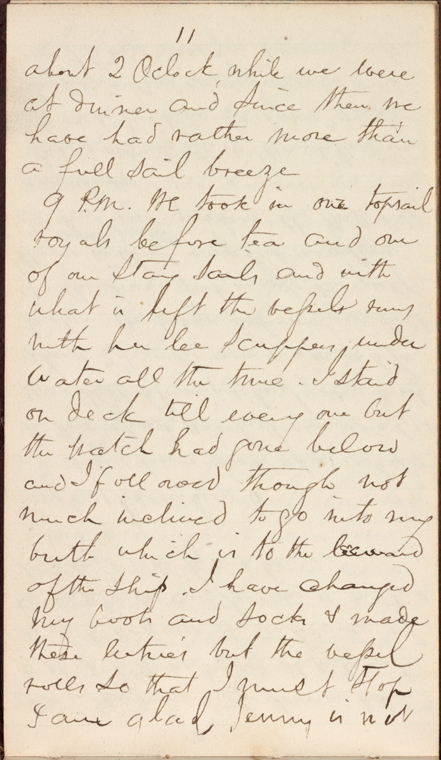 11
about 2 Oclock, while we were
at dinner and since then we
have had rather more than
a full sail breeze
9 P.M. We took in our topsail
royals before tea and one
of our Stay Sails and with
what is left the vessels runs
with her lee Scuppers under
Water all the time. I staid
on deck till every one but
the watch had gone below
and I followed though not
much inclined to go into my
birth which is to the leeward
of the ship. I have changed
my boots and socks & made
these entries but the vessel
rolls so that I must stop
I am glad Jenny is not